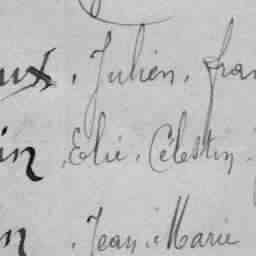 ux, Julien, fran
in, Elie, Célestin,
n, Jean, Marie